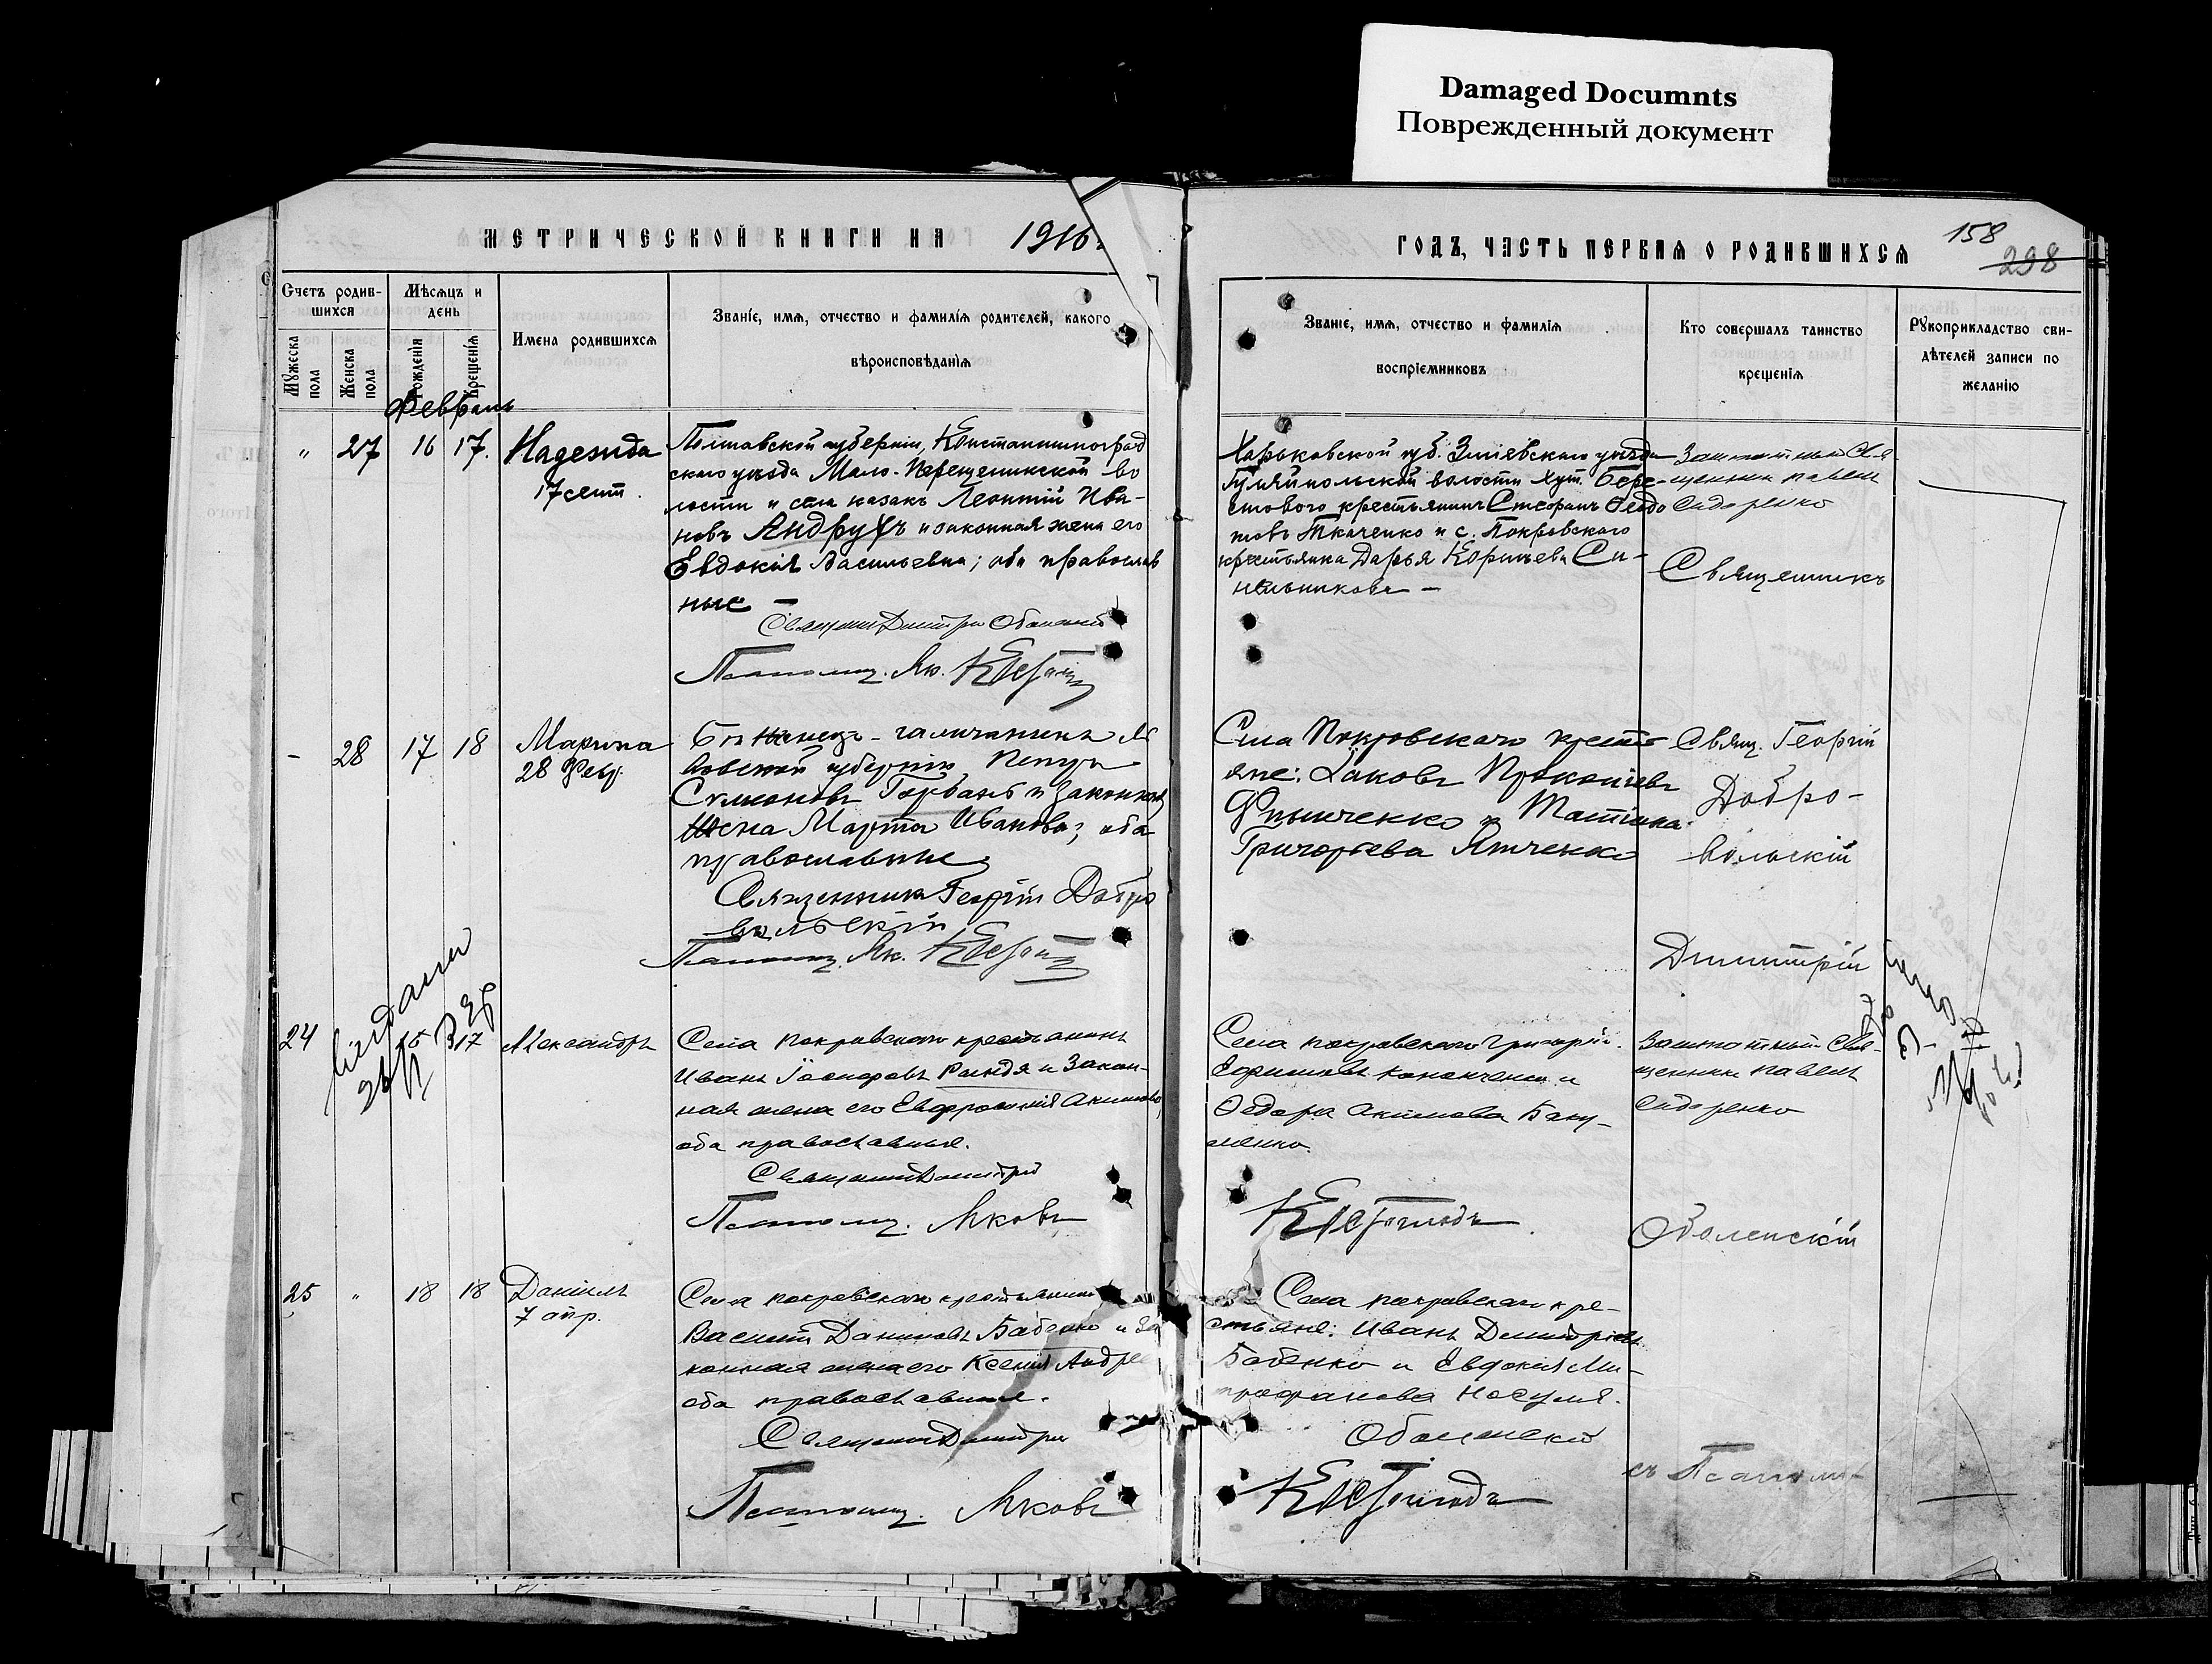 Damaged Documnts
Поврежденный документ
МЕТРИЧЕСКОЙ КНИГИ НА 1916
ГОДЪ, ЧАСТЬ ПЕРВАЯ О РОДИВШИХСЯ
158
298
Счетъ родив-
шихся
Мѣсяцъ и
день
Имена родившихся
Званіе, имя, отчество и фамилія родителей, какого
вѣроисповѣданія
Мужеска пола
Женска пола
Рожденія
Крещенія
Званіе, имя, отчество и фамилія
воспріемниковъ
Кто совершалъ таинство
крещенія
Рукоприкладство сви-
дѣтелей записи по
желанію
Февраль
" 27 16 17. Надежда
17 сент.
Полтавской губерніи, Константиноград
скаго уѣзда Мало-Перещепинской во
лости и села казакъ Леонтій Ива-
новъ Андрухъ и законная жена его
Евдокія Васильевна; оба православ
ные —
Священ Дмитрій
Псаломщ. Як.
Харьковской губ. Зміевскаго уѣзда
волости Хут. Бере-
стового крестьянинъ Стефанъ Ѳеодо
товъ Ткаченко и с. Покровскаго
крестьянка Дарья Си-
нельникова —
Заштатный Свя-
щенникъ Павелъ
Сидоренко
Священникъ
- 28 17 18 Марина
28 Февр.
галичанинъ
губерніи Петръ
Симоновъ Горбань и законная
жена Марта Иванова; оба
православные
Священникъ Георгій Добро
вольскій
Псаломщ. Як.
Села Покровскаго кресть
яне: Іаковъ Прокопіевъ
и Татіана
Григорьева Ятченко
Свящ. Георгій
Добро-
вольскій
Димитрій
24 17 Александръ
Села Покровскаго крестьянинъ
Иванъ Рындя и закон-
ная жена его Евфросинія Акимова,
оба православные.
Священ Дмитрій
Псаломщ. Яковъ
Села Покровскаго Григорій
Ефимовъ Кононченко и
Ѳедора Акимова Баку-
менко.
Заштатный Свя-
щенникъ Павелъ
Сидоренко
Оболенскій
25 " 18 18 Даніилъ
7 апр.
Села Покровскаго крестьянинъ
Василій Даниловъ Бабенко и за
конная жена его Ксенія Андре
оба православные.
Священ Дмитрій
Псаломщ. Яковъ
Села Покровскаго кре-
стьяне: Иванъ Димитріевъ
Бабенко и Евдокія Ми-
трофанова Носуля.
Оболенскій
съ Псалом